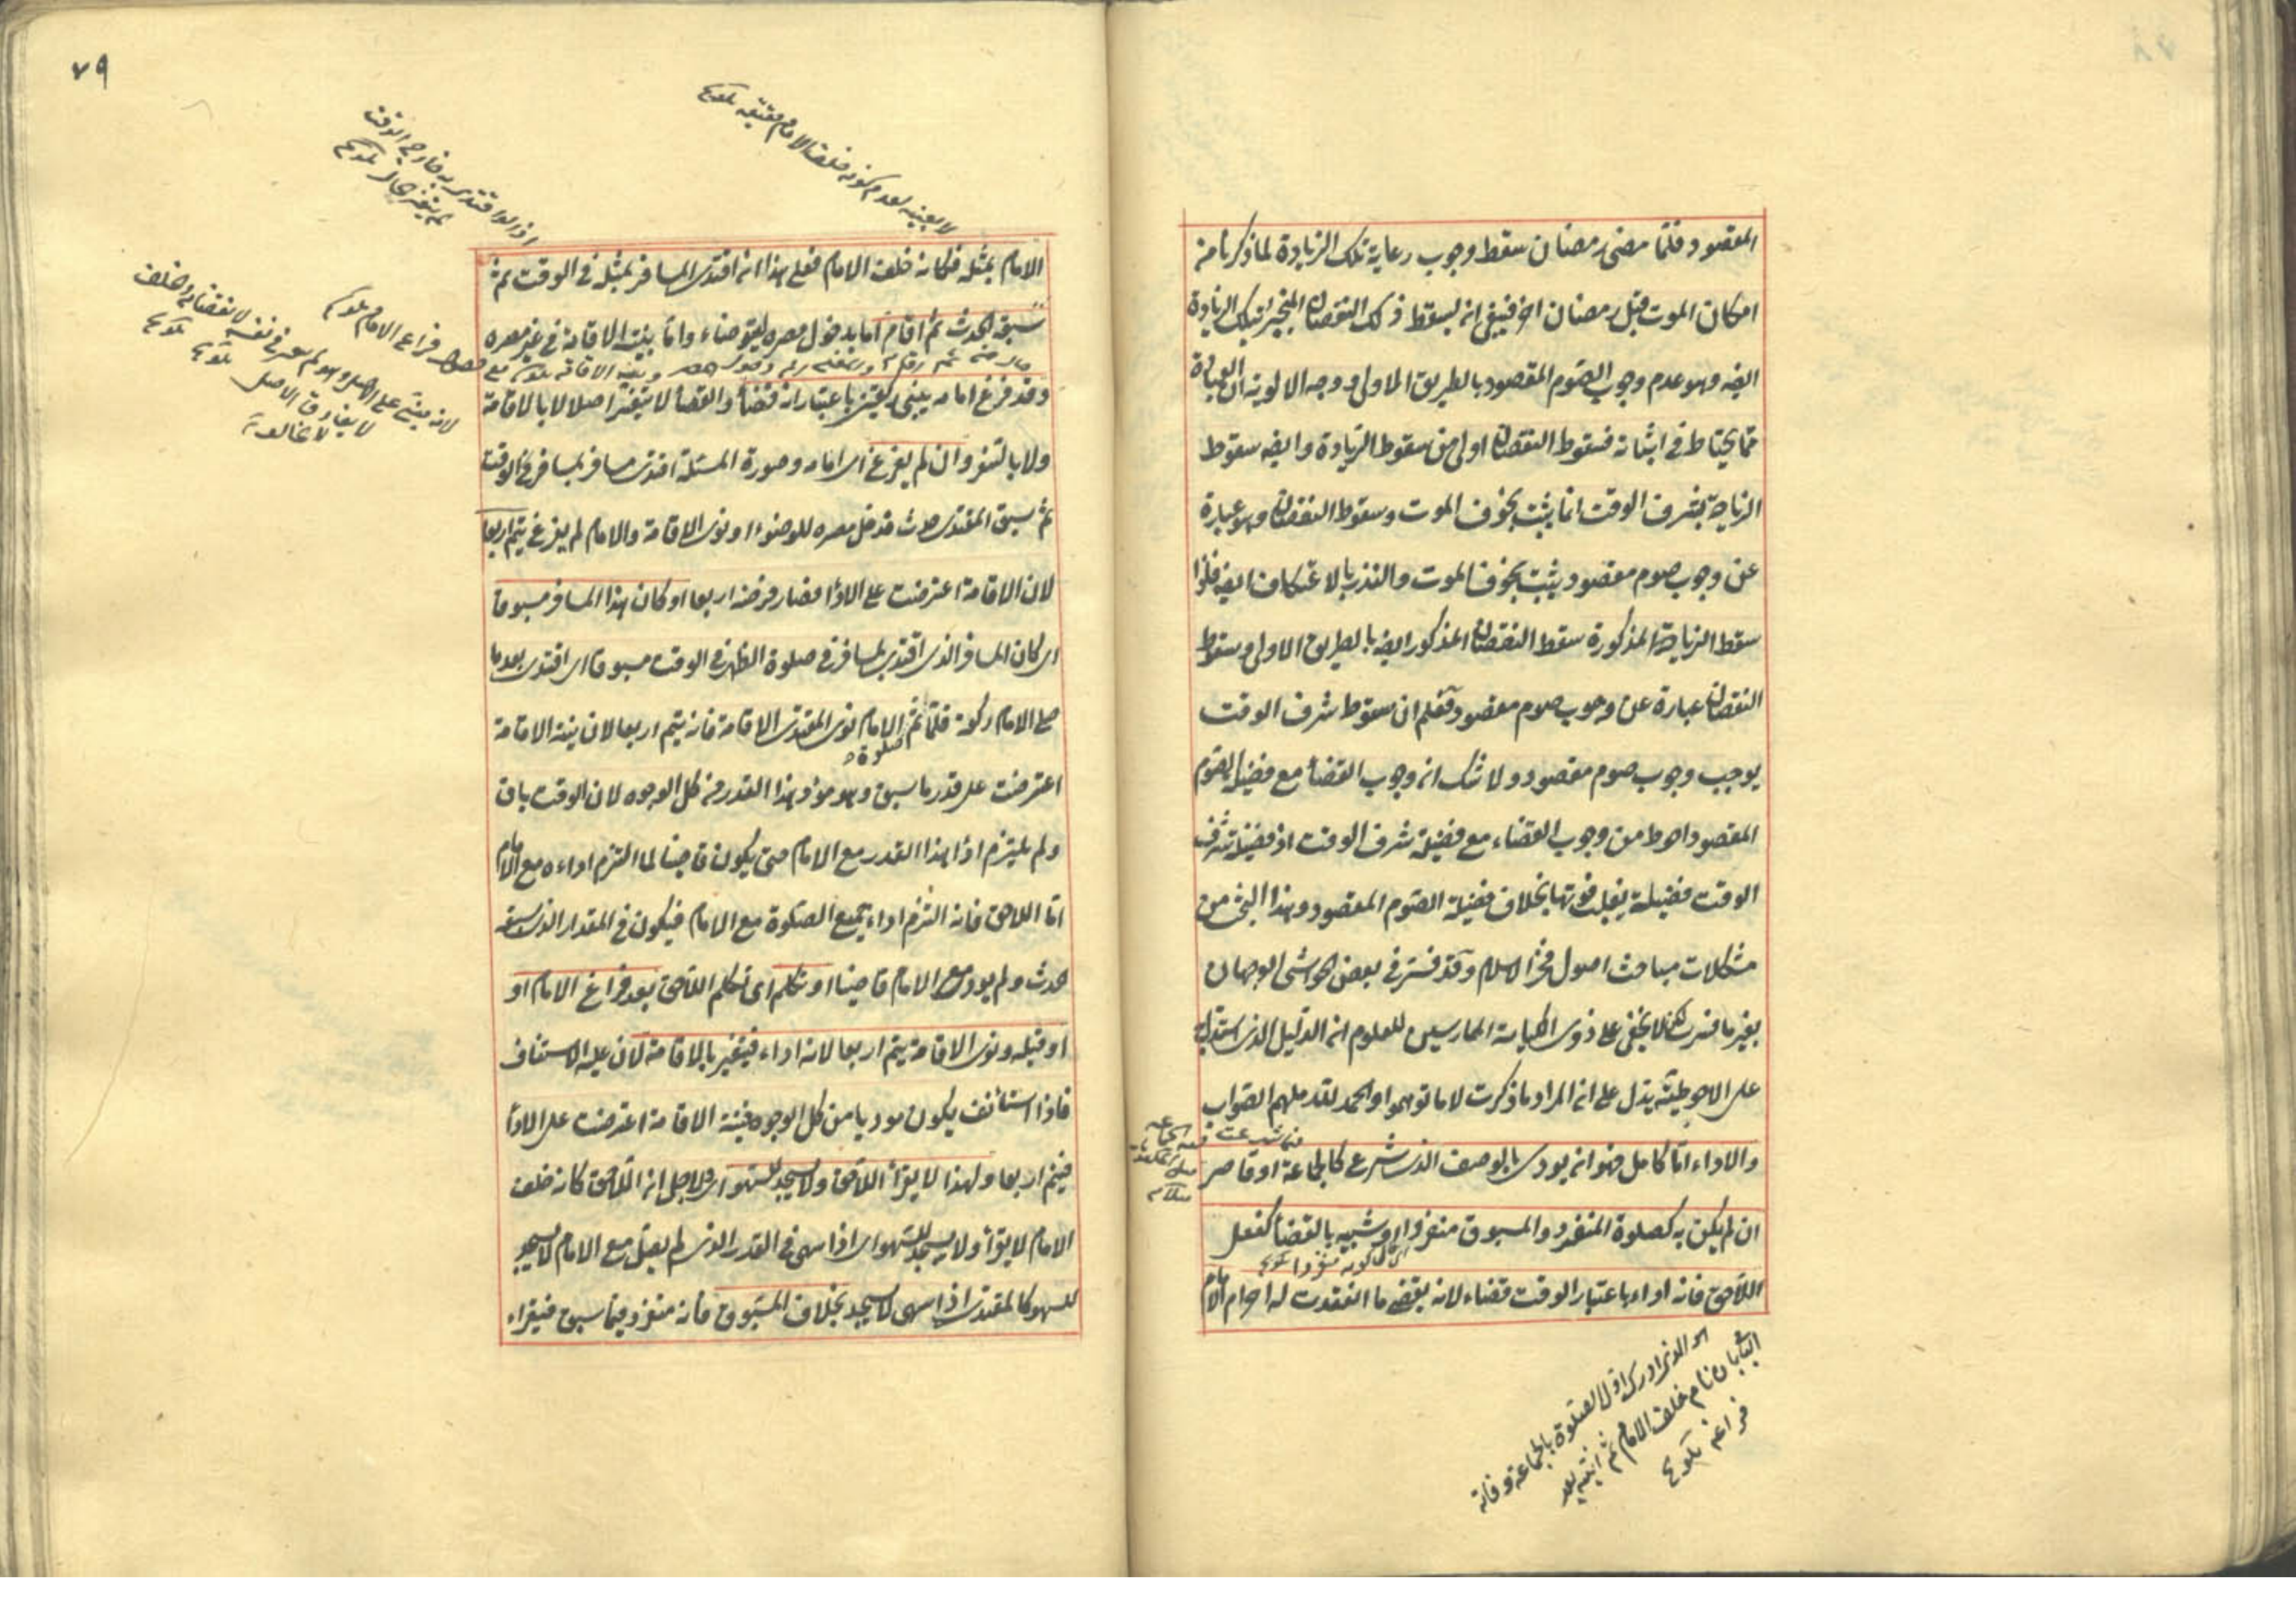 المقصود فلما مضى رمضان سقط وجوب رعاية تلك الزيادة لما ذكرنا من
امكان الموت قبل رمضان اخر فينبغي انه يسقط ذلك النقصان المنجبر بتلك الزيادة
ايضه وهو عدم وجوب الصوم المقصود بالطريق الاولى ووجه الاولوية ان العبادة
مما يحتاط في اثباته فسقوط النقصان اولى من سقوط الزيادة وايضه سقوط
الزيادة بشرف الوقت انما يثبت بخوف الموت وسقوط النقصان وهو عبارة
عن وجوب صوم مقصود يثبت بخوف الموت والنذر بالاعتكاف ايضه فلوا
سقط الزيادة المذكورة سقط النقصان المذكور ايضه بالطريق الاولى وسقوط
النقصان عبارة عن وجوب صوم مقصود فعلم ان سقوط شرف الوقت
يوجب وجوب صوم مقصود ولا شك انه وجوب القضا مع فضيلة الصوم
المقصود احوط من وجوب القضاء مع فضيلة شرف الوقت اذ فضيلة شرف
الوقت فضيلة يغلب فوتها بخلاف فضيلة الصوم المقصود وهذا البحث من
مشكلات مباحث اصول فخر الاسلام وقد فسر في بعض الحواشى الوجهان
بغير ما فسرت لكن لا يخفى على ذوى الكياسة الممارسين للعلوم انه الدليل الذى استدل به
على الاحوطية يدل على انه المراد ما ذكرت لا ما توهموا والحمد لله ملهم الصواب
والاداء اما كامل فهو انه يودى بالوصف الذى شرع كالجماعة او قاصر
ان لم يكن به كصلوة المنفرد والمسبوق منفردا او شبيه بالقضا كفعل
اللاحق فانه اداء باعتبار الوقت قضاء لانه يقضى ما انعقدت له احرام الامام
اى الذى ادرك اول الصلوة بالجماعة وفاته
الباقى بان نام خلف الامام ثم انتبه بعد
فراغه تلويح
٧٩
لا بعينه لعدم كونه خلف الامام حقيقة تلويح
اذ لو اقتدى به خارج الوقت
لم يتغير بحال تلويح
الامام بمثله فكانه خلف الامام فعلى هذا انه اقتدى المسافر بمثله في الوقت ثم
سبقه الحدث ثم اقام اما بدخول مصره ليتوضاء واما بنية الاقامة في غير مصره
وقد فرغ امامه يبنى ركعتين باعتبار انه قضا والقضا لا يتغير اصلا لا بالاقامة
ولا بالسفر وان لم يفرغ اى امامه وصورة المسئلة اقتدى مسافر بمسافر في الوقت
ثم سبق المقتدى حدث فدخل مصره للوضوء او نوى الاقامة والامام لم يفرغ يتم اربعا
لان الاقامة اعترضت على الادا فصار فرضه اربعا او كان هذا المسافر مسبوقا
اى كان المسافر الذى اقتدى بمسافر في صلوة الظهر في الوقت مسبوقا اى اقتدى بعد ما
صلى الامام ركعة فلما تم الامام نوى المقتدى الاقامة فانه يتم اربعا لان نية الاقامة
صلوة
اعترضت على قدر ما سبق وهو مود هذا القدر من كل الوجوه لان الوقت باق
ولم يلتزم ادا هذا القدر مع الامام حتى يكون قاضيا لما التزم اداءه مع الامام
اما اللاحق فانه التزم اداء جميع الصلوة مع الامام فيكون في المقدار الذى سبقه
حدث ولم يود مع الامام قاضيا او تكلم اى تكلم اللاحق بعد فراغ الامام او
او قبله ونوى الاقامة يتم اربعا لانه اداء فيتغير بالاقامة لان عليه الاستئناف
فاذا استأنف يكون موديا من كل الوجوه فنية الاقامة اعترضت على الادا
فيتم اربعا ولهذا لا يقرأ اللاحق ولا يسجد للسهو اى ولاجل انه اللاحق كانه خلف
الامام لا يقرأ ولا يسجد للسهو اى اذا سهى في القدر الذى لم يصل مع الامام لا يسجد
للسهو كالمقتدى اذا سهى لا يسجد بخلاف المسبوق فانه منفرد فيما سبق فيقراء